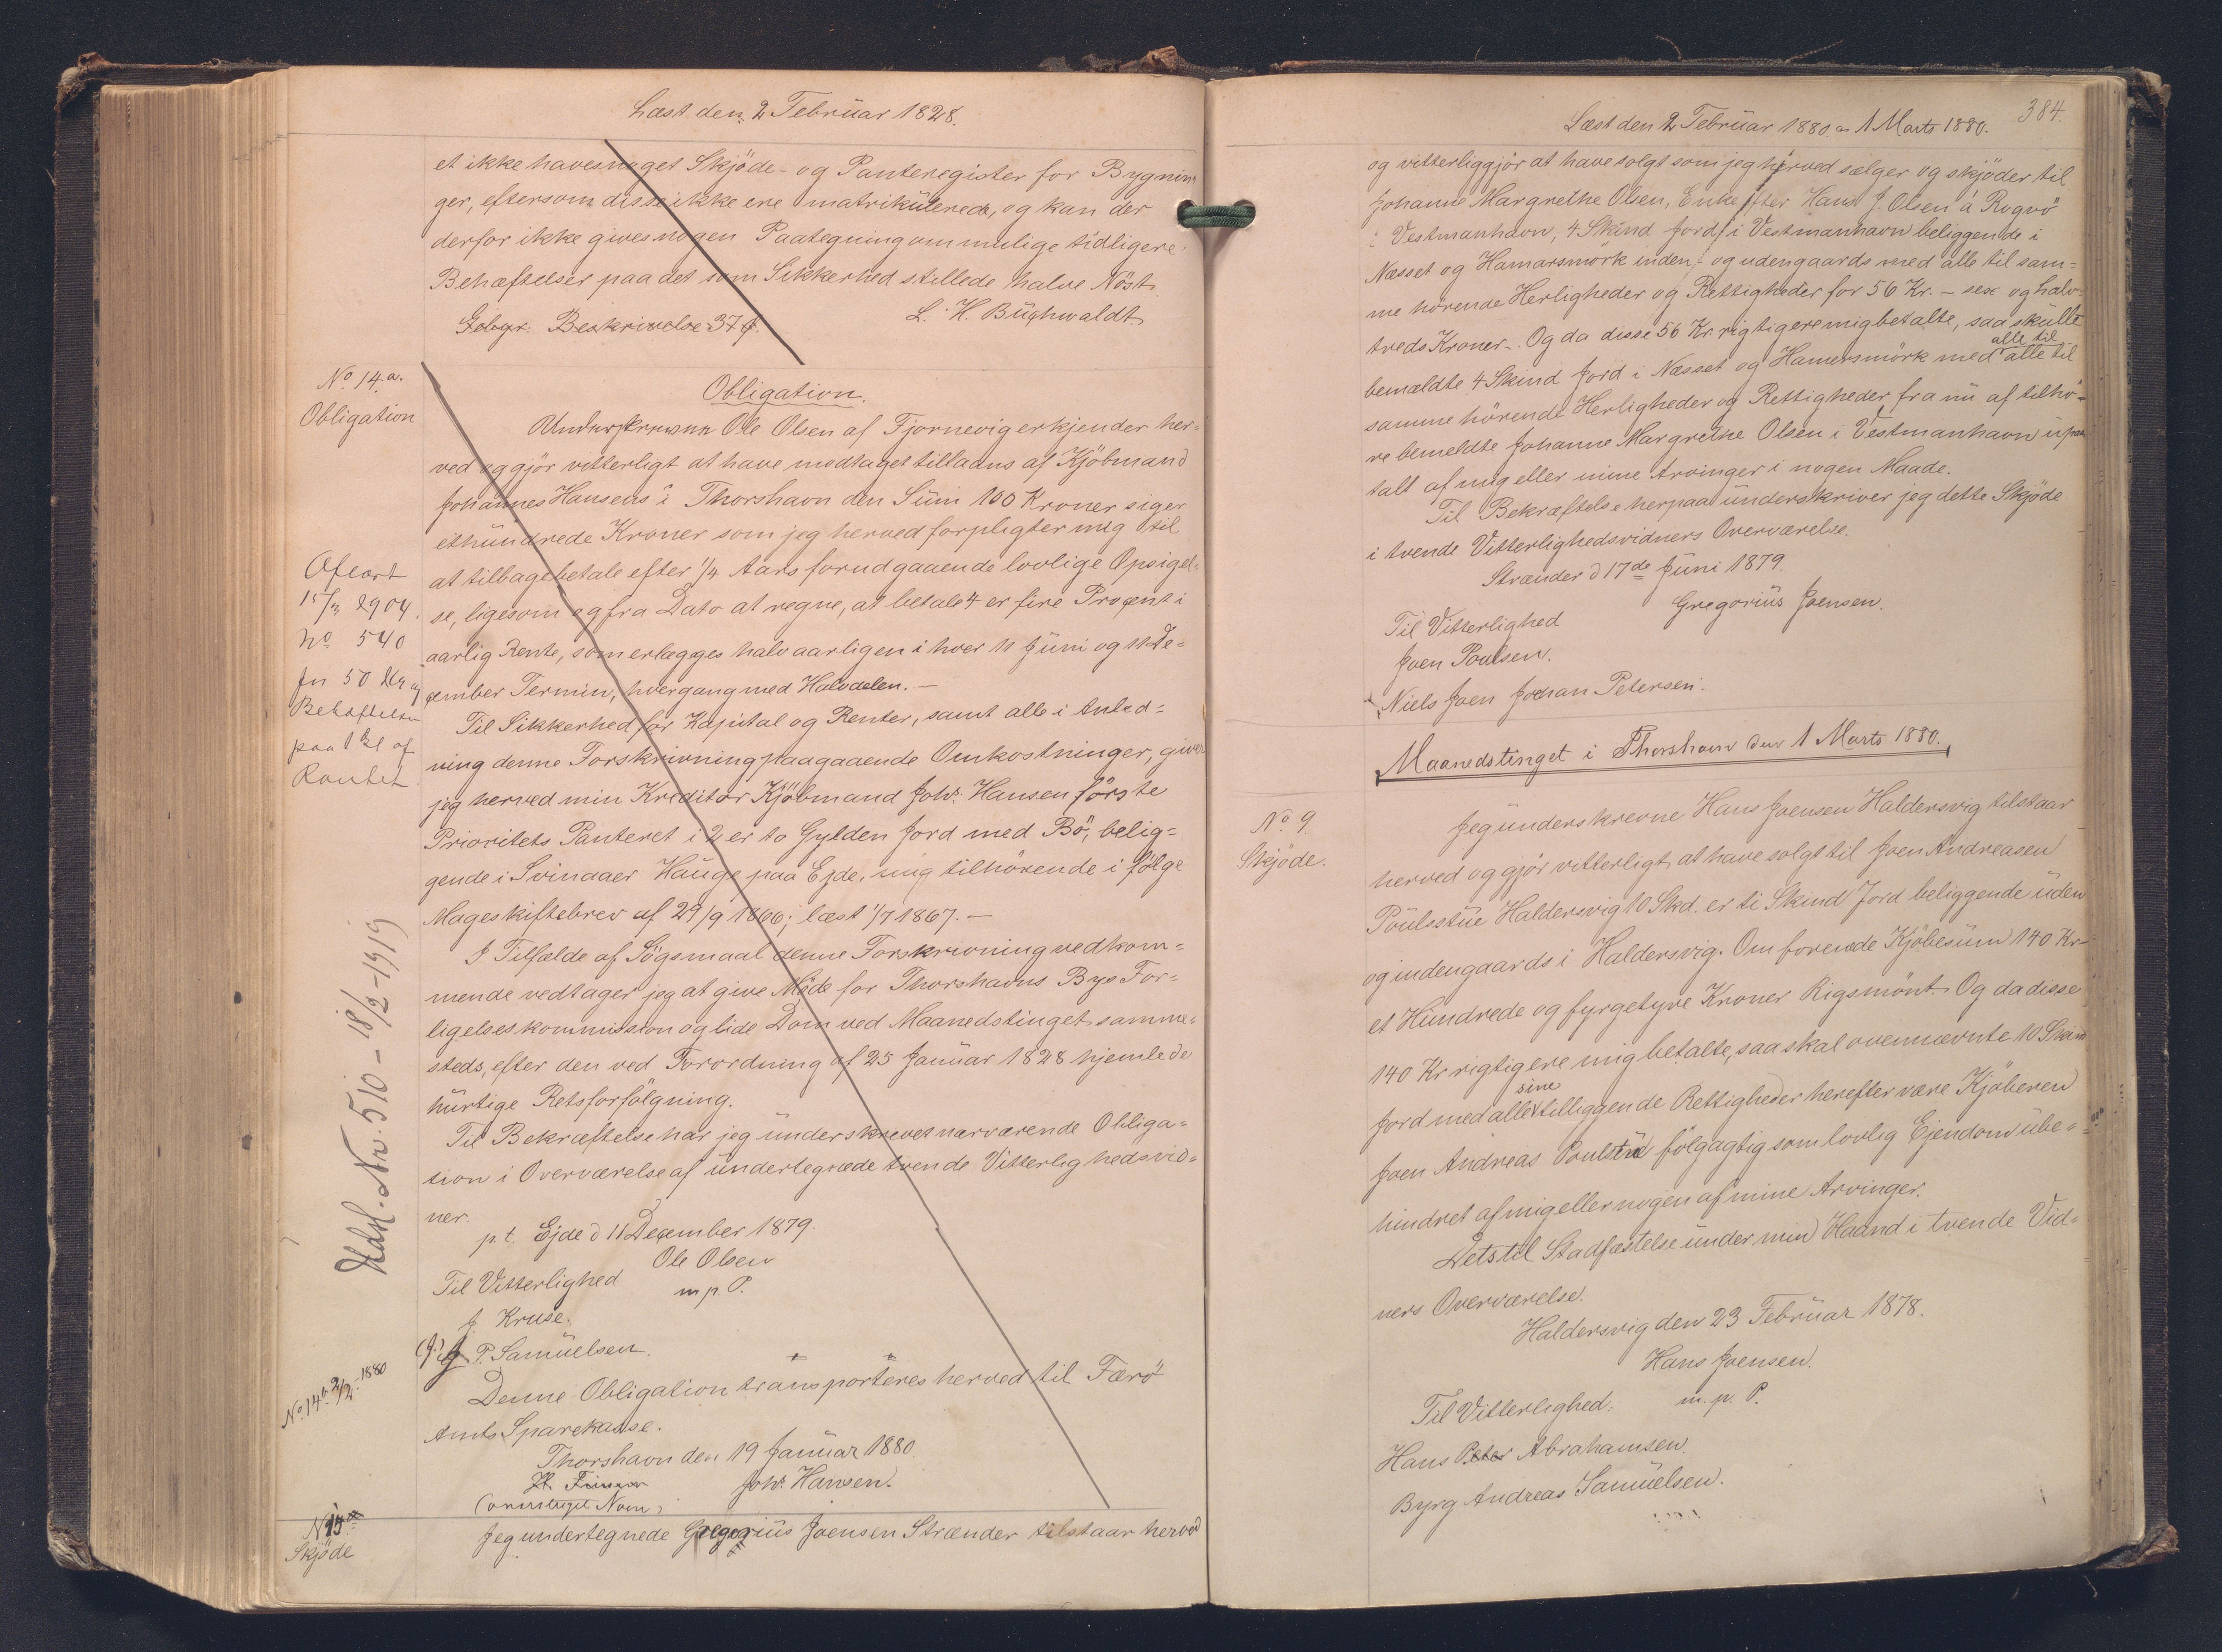 Læst den 2 Februar 1828.
et ikke haves noget Skjöde- og Panteregister for Bygnin
ger, eftersom disse ikke ere matrikulerede, og kan der
derfor ikke gives nogen Paategning om mulige tidligere
Behæftelser paa det som Sikkerhed stillede halve Nöst.
Gebyr. Beskrivelse 37
L. H. Buchwaldt
No 14.a.
Obligation
Obligation.
Underskrevne Ole Olsen af Tjornevig erkjender her-
ved og gjör vitterligt at have modtaget tillaans af Kjöbmand
Johannes Hansens i Thorshavn den Sum 100 Kroner siger
ethundrede Kroner som jeg herved forpligter mig til
at tilbagebetale efter 1/4 Aars forudgaaende lovlige Opsigel-
se, ligesom og fra Dato at regne, at betale 4 er fire Procent i
aarlig Rente, som erlægges halvaarligen i hver 11 Juni og 11 De=
cember Termin, hvergang med Halvdelen. —
Til Sikkerhed for Kapital og Renter, samt alle i Anled=
ning denne Forskrivning paagaaende Omkostninger, giver
jeg herved min Kreditor Kjöbmand Johs. Hansen förste
Prioritets Panteret i 2 er to Gylden Jord med Bö, belig=
gende i Svinaaer Hauge paa Ejde, mig tilhörende i fölge
Mageskiftebrev af 29/9 1866; læst 1/7 1867. —
I Tilfælde af Sögsmaal denne Forskrivning vedkom=
mende vedtager jeg at give Möde for Thorshavns Byes For=
ligelseskommission og lide Dom ved Maanedstinget samme-
steds, efter den ved Forordning af 25 Januar 1828 hjemlede
hurtige Retsforfölgning.
Til Bekræftelse har jeg underskrevet nærværende Obliga=
tion i Overværelse af undertegnede tvende Vitterlighedsvid=
ner.
p.t. Ejde d 11 December 1879.
Ole Olsen
m. p. P.
Til Vitterlighed
J. Kruse.
(J.) J P. Samuelsen.
Aflært
15/3 1904.
No 540
for 50
Behæftelsen
paa 1 Gl af
Pantet
Udsl. Nr. 510 - 18/2 - 1919
No 14 b. 2/2. 1880
Denne Obligation transporteres herved til Færö
Amts Sparekasse.
Thorshavn den 19 Januar 1880.
Johs. Hansen.
(overstreget Navn)
N 15
Skjöde
Jeg undertegnede Gregorius Joensen Strænder tilstaar herved
384.
Læst den 2 Februar 1880 & 1 Marts 1880.
og vitterliggjör at have solgt som jeg herved sælger og skjöder til
Johanne Margrethe Olsen, Enke efter Hans J. Olsen á Rogvö
i Vestmanhavn, 4 Skind Jord i Vestmanhavn beliggende i
Næsset og Hamarsmörk inden- og udengaards med alle til sam=
me hörende Herligheder og Rettigheder for 56 Kr. - sex og halv-
treds Kroner -. Og da disse 56 Kr. rigtig ere mig betalte, saa skulle
bemældte 4 Skind Jord i Næsset og Hamersmörk med alle til alle til
samme hörende Herligheder og Rettigheder, fra nu af tilhö-
re bemeldte Johanne Margrethe Olsen i Vestmanhavn upaa
talt af mig eller mine Arvinger i nogen Maade.
Til Bekræftelse herpaa underskriver jeg dette Skjöde
i tvende Vitterlighedsvidners Overværelse.
Strænder d 17de Juni 1879.
Gregorius Joensen.
Til Vitterlighed
Joen Poulsen.
Niels Joen Johan Petersen.
Maanedstinget i Thorshavn den 1 Marts 1880.
No. 9.
Skjöde.
Jeg underskrevne Hans Joensen Haldersvig tilstaar
herved og gjör vitterligt at have solgt til Joen Andreasen
Poulsstue Haldersvig 10 Skd. er ti Skind Jord beliggende uden
og indengaards i Haldersvig. Om forenede Kjöbesum 140 Kr
et Hundrede og fyrgetyve Kroner Rigsmönt. Og da disse
140 Kr rigtig ere mig betalte, saa skal ovennævnte 10 Skind
Jord med alle sine tilliggende Rettigheder herefter være Kjöberen
Joen Andreas Poulstue fölgagtig som lovlig Ejendom ube=
hindret af mig eller nogen af mine Arvinger.
Dets til Stadfæstelse under min Haand i tvende Vid=
ners Overværelse.
Haldersvig den 23 Februar 1878.
Hans Joensen.
m. p. P.
Til Vitterlighed.
Hans Peter Abrahamsen.
Byrg Andreas Samuelsen.